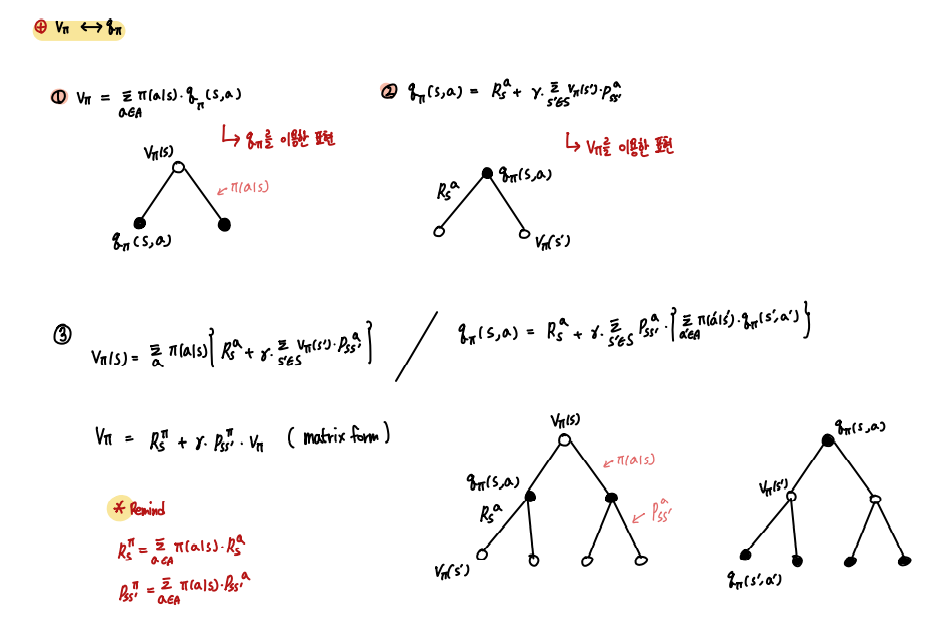 ⊕ Vπ ↔ qπ
① Vπ = Σ_{a∈A} π(a|s)·qπ(s,a)
↳ qπ를 이용한 표현
Vπ(s)
π(a|s)
qπ(s,a)
② qπ(s,a) = R_s^a + γ·Σ_{s'∈S} Vπ(s')·P_{ss'}^a
↳ Vπ를 이용한 표현
qπ(s,a)
R_s^a
Vπ(s')
③
Vπ(s) = Σ_a π(a|s){ R_s^a + γ·Σ_{s'∈S} Vπ(s')·P_{ss'}^a }
/ qπ(s,a) = R_s^a + γ·Σ_{s'∈S} P_{ss'}^a·{ Σ_{a'∈A} π(a'|s')·qπ(s',a') }
Vπ = R_s^π + γ·P_{ss'}^π·Vπ (matrix form)
* Remind
R_s^π = Σ_{a∈A} π(a|s)·R_s^a
P_{ss'}^π = Σ_{a∈A} π(a|s)·P_{ss'}^a
Vπ(s)
π(a|s)
qπ(s,a)
R_s^a
P_{ss'}^a
Vπ(s')
qπ(s,a)
Vπ(s')
qπ(s',a')